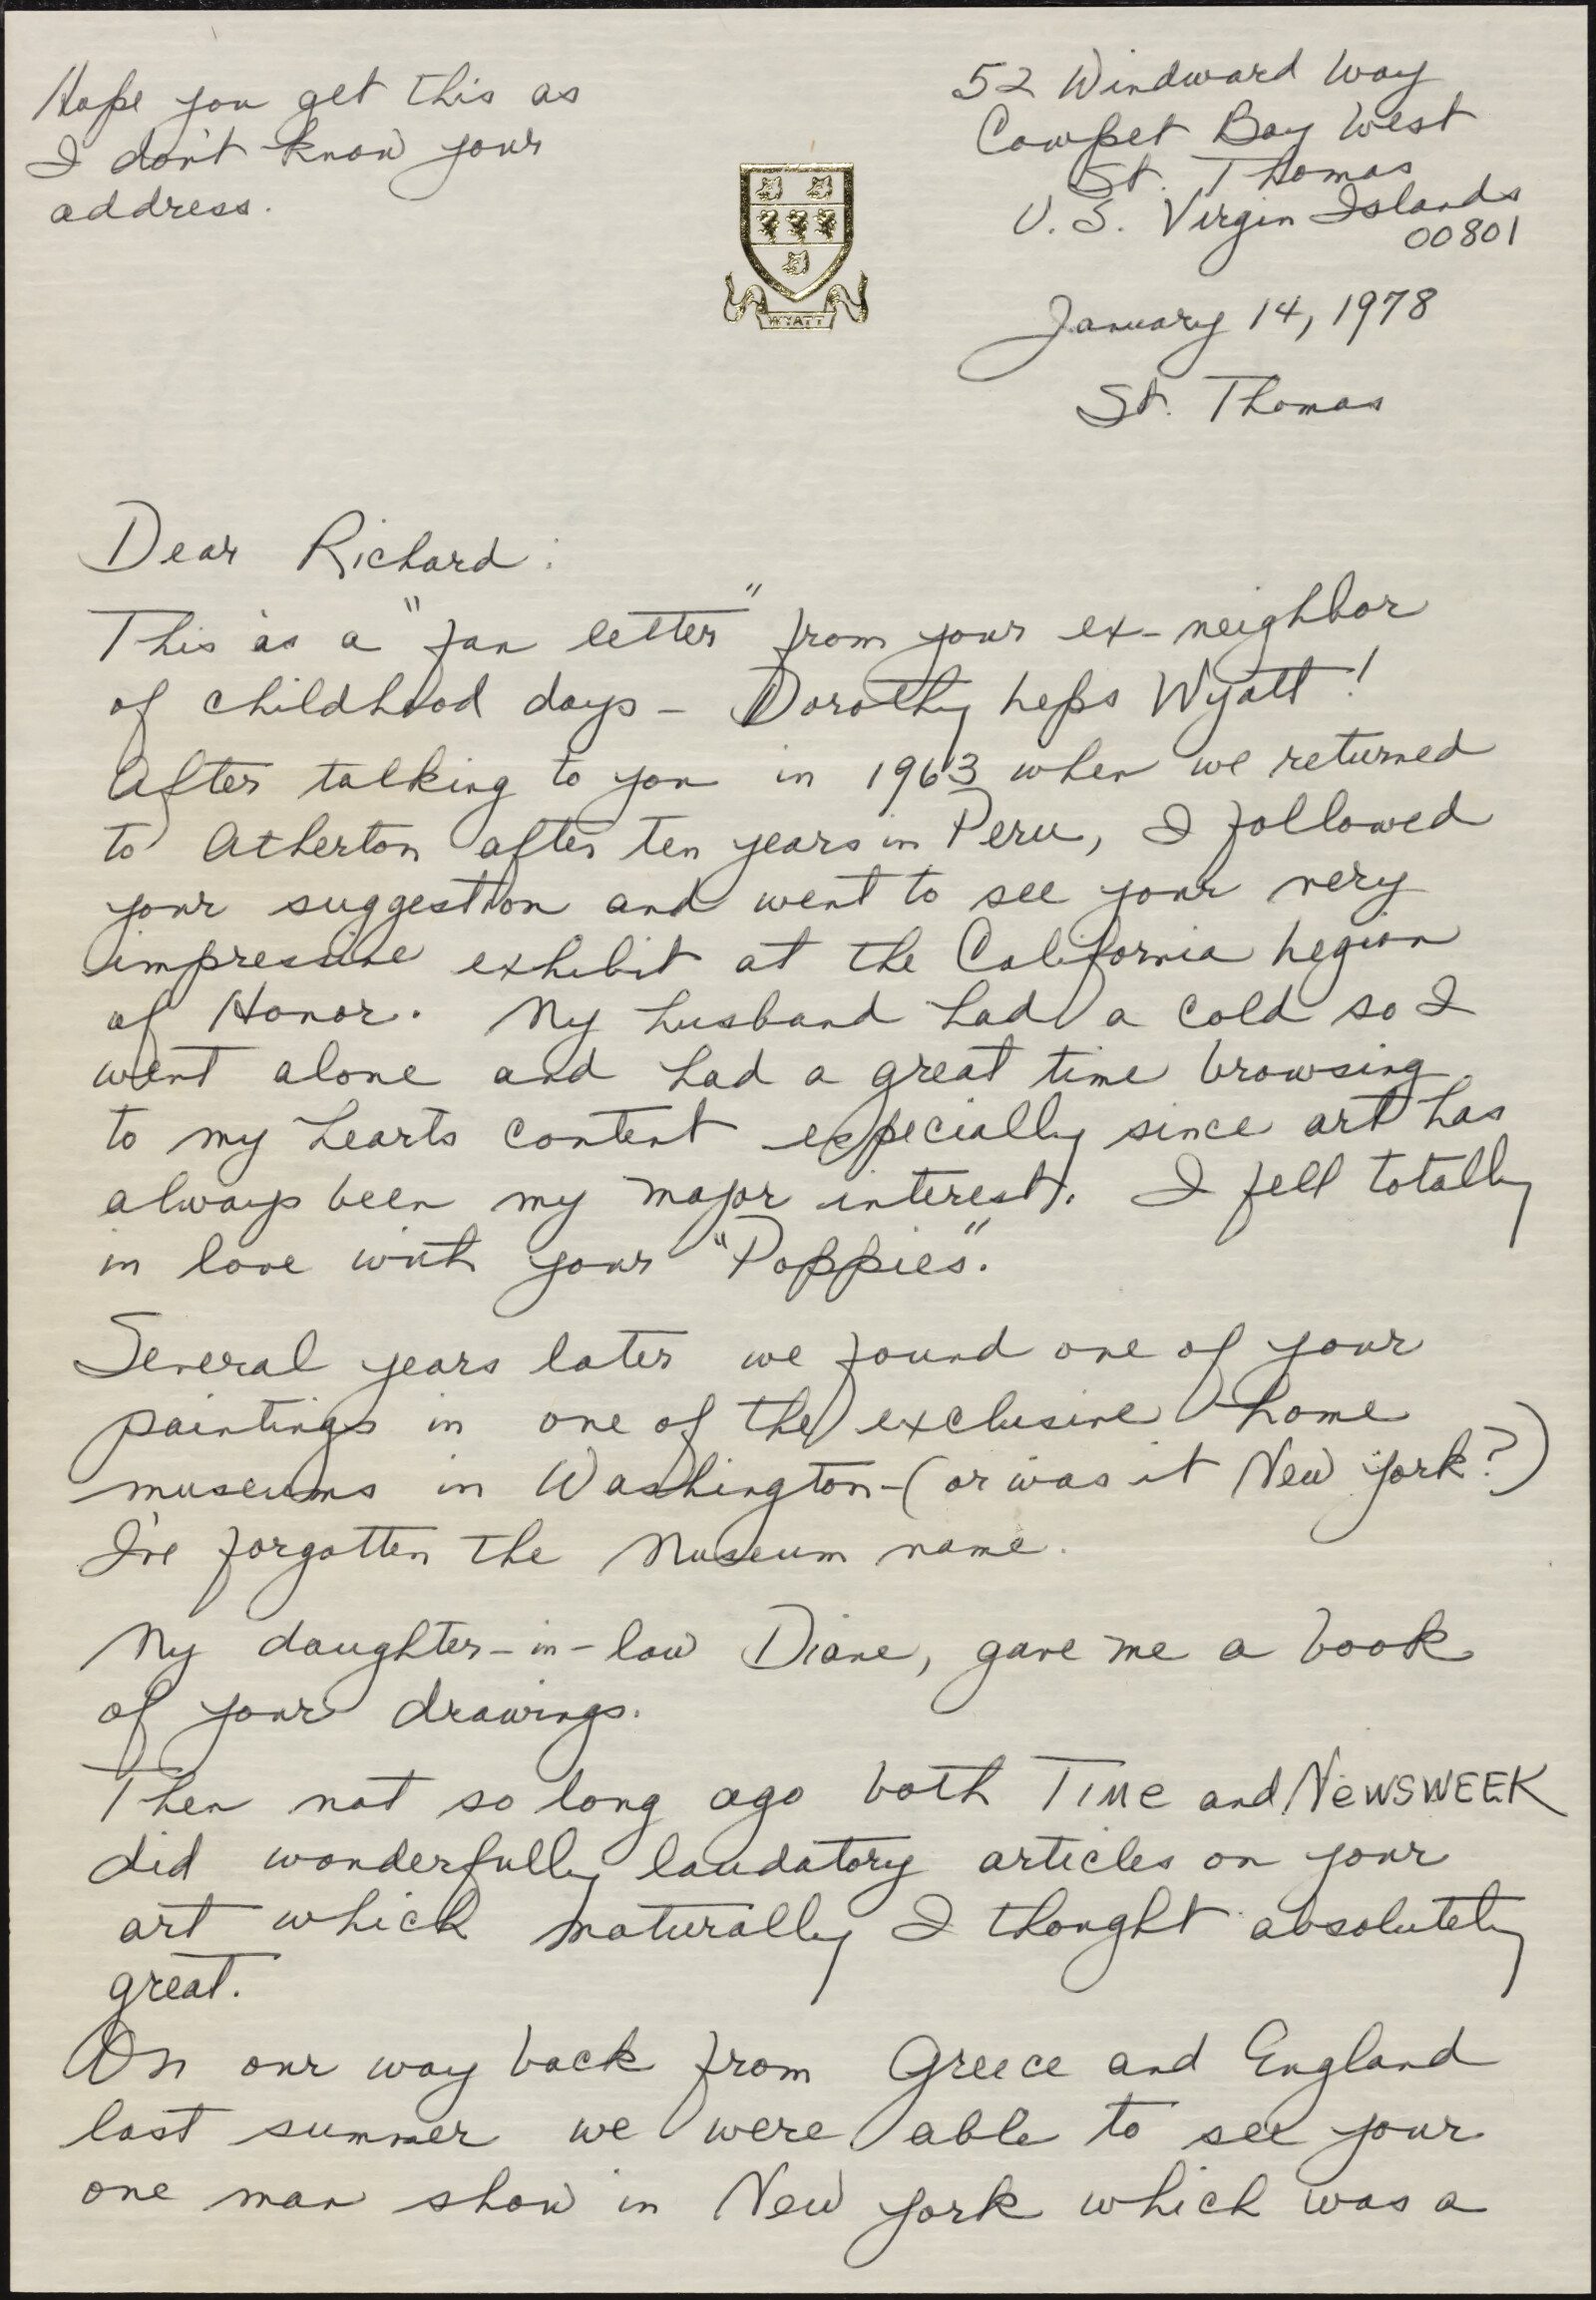 Hope you get this as
I don't know your
address.
52 Windward Way
Cowpet Bay West
St. Thomas
U.S. Virgin Islands
00801
WYATT
January 14, 1978
St. Thomas
Dear Richard:
This is a "fan letter" from your ex-neighbor
of childhood days - Dorothy Leps Wyatt!
After talking to you in 1963 when we returned
to Atherton after ten years in Peru, I followed
your suggestion and went to see your very
impressive exhibit at the California Legion
of Honor. My husband had a cold so I
went alone and had a great time browsing
to my hearts content especially since art has
always been my major interest. I fell totally
in love with your "Poppies".
Several years later we found one of your
paintings in one of the exclusive home
museums in Washington - (or was it New York?)
I've forgotten the Museum name.
My daughter-in-law Diane, gave me a book
of your drawings.
Then not so long ago both TIME and NEWSWEEK
did wonderfully laudatory articles on your
art which naturally I thought absolutely
great.
On our way back from Greece and England
last summer we were able to see your
one man show in New York which was a